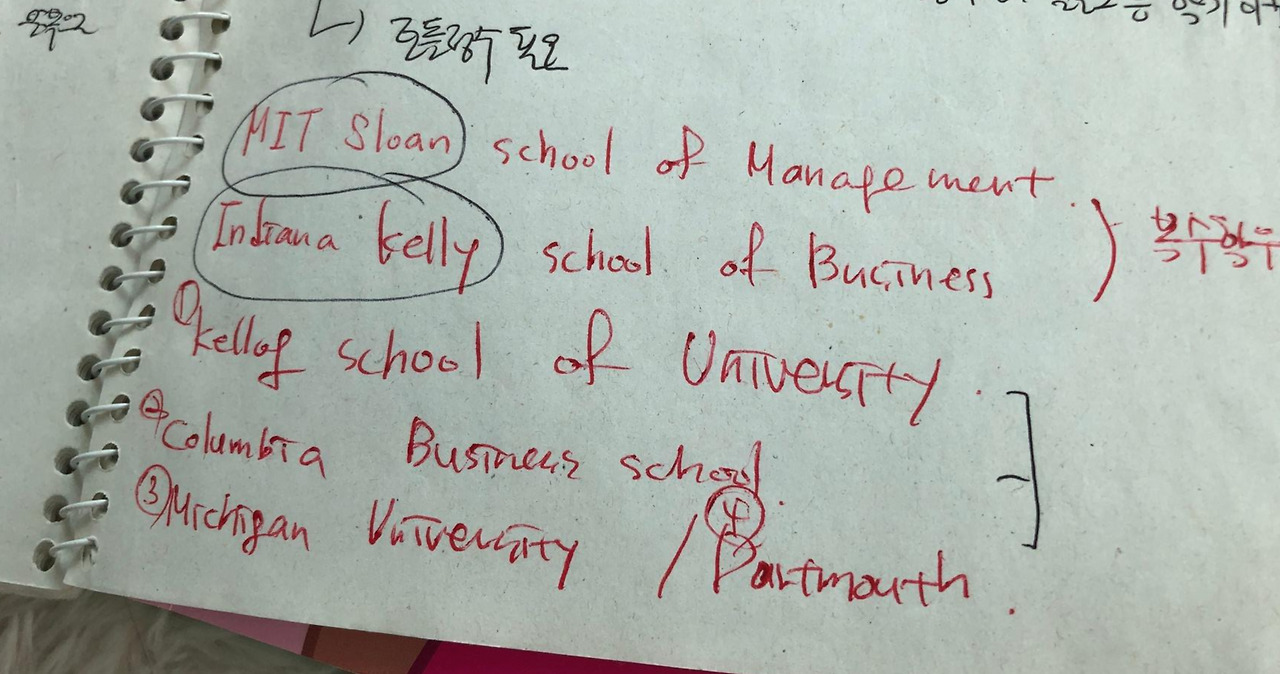 필요
MIT Sloan school of Management.
Indiana kelly school of Buciness
① kellog school of University.
② Columbia Business school.
③ Michigan University / ④ Dartmouth.